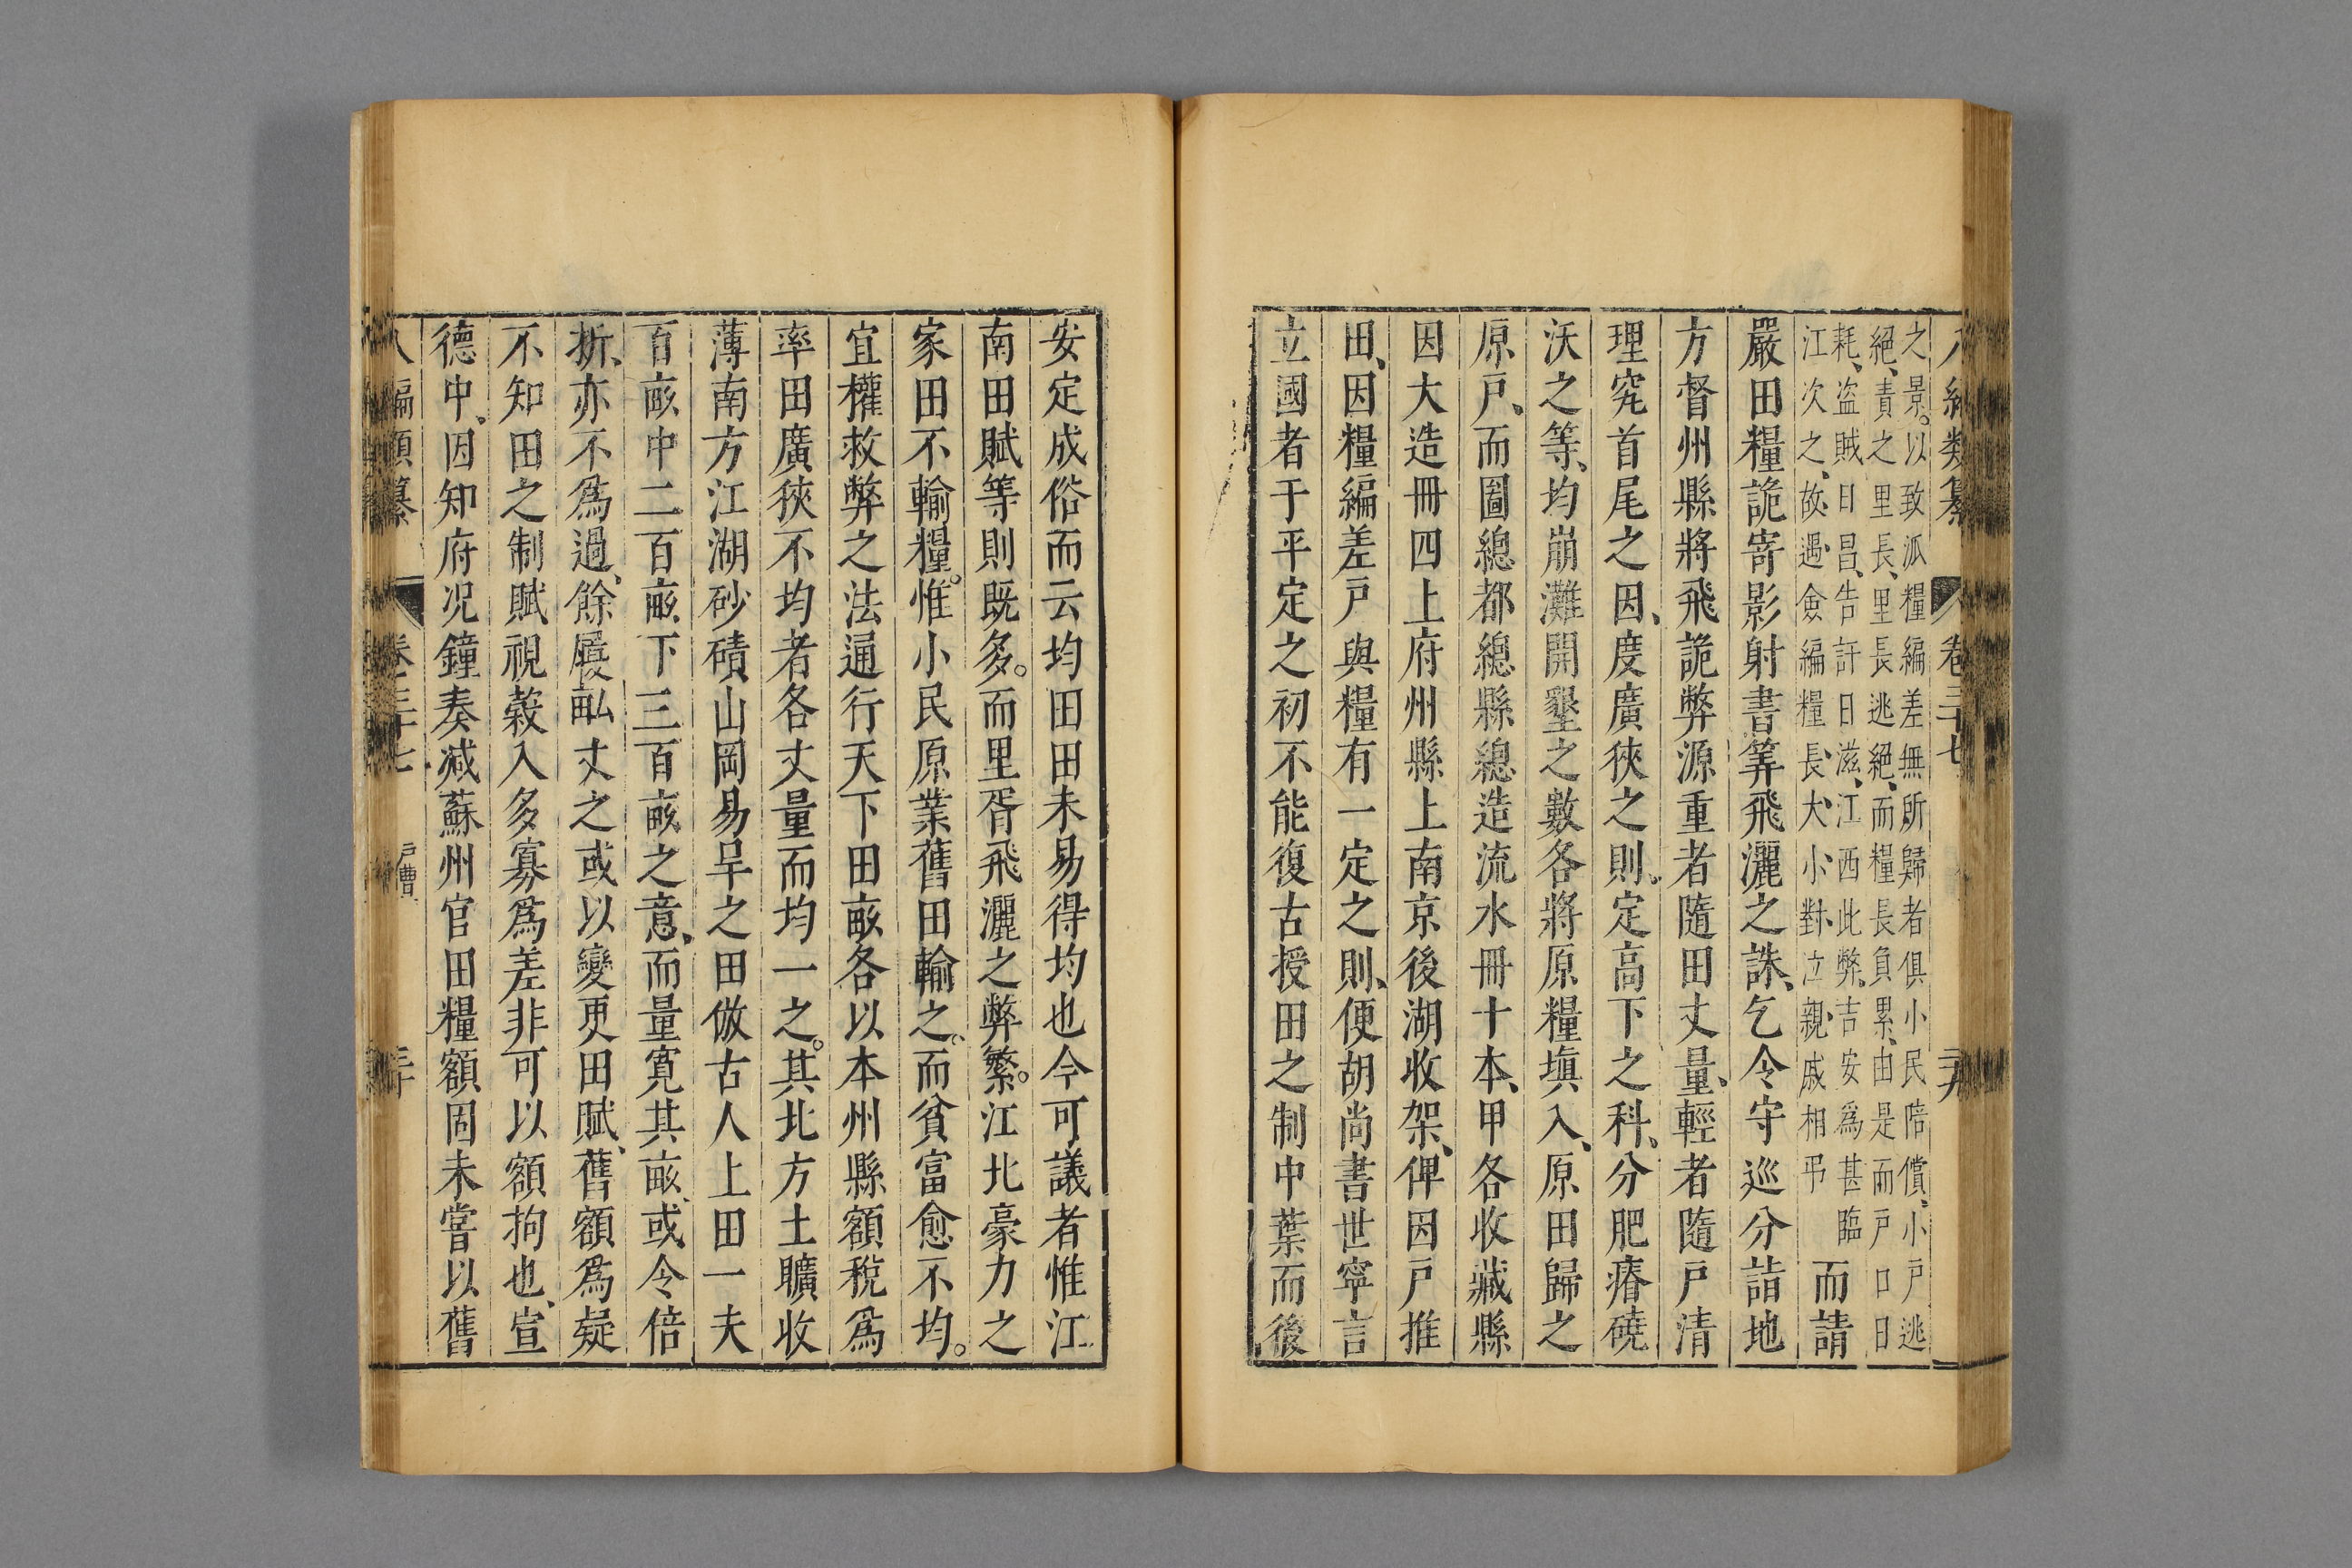 八編類纂 卷三十七 二十九
之景。以致泒糧編差無所歸者俱小民陪償、小戸逃
絕、責之里長、里長逃絕、而糧長負累、由是而戸口日
耗、盗賊日昌、告訐日滋、江西此弊、吉安爲甚臨
江次之、故遇僉編糧長、大小對立親戚相弔
而請
嚴田糧詭寄影射書筭飛灑之誅、乞令守巡分詣地
方督州縣將飛詭弊源重者隨田丈量、輕者隨戸清
理究首尾之因、度廣狹之則。定高下之科、分肥瘠磽
沃之等、均崩灘開墾之數各將原糧塡入、原田歸之
原戸、而圖總都總縣總造流水冊十本、甲各收藏縣
因大造冊四上府州縣上南京後湖收架、俾因戸推
田、因糧編差戸與糧有一定之則、便胡尚書世寧言
立國者于平定之初不能復古授田之制中葉而後
安定成俗而云均田田未易得均也今可議者惟江
南田賦等則既多。而里胥飛灑之弊繁。江北豪力之
家田不輸糧。惟小民原業舊田輸之。而貧富愈不均。
宜權救弊之法通行天下田畝各以本州縣額稅爲
率田廣狹不均者各丈量而均一之。其北方土曠收
薄南方江湖砂磧山岡易旱之田倣古人上田一夫
百畝中二百畝下三百畝之意、而量寬其畝、或令倍
折、亦不爲過、餘履畝丈之或以變更田賦、舊額爲疑
不知田之制賦視穀入多寡爲差非可以額拘也、宣
德中、因知府況鐘奏减蘇州官田糧額固未嘗以舊
八編類纂 卷三十七 戸曹 三十